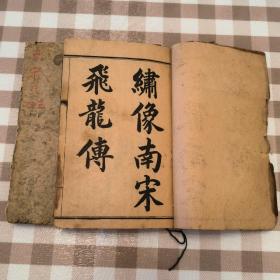 繡像南宋
飛龍傳